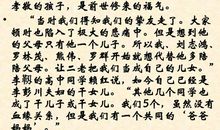 孝敬的孩子，是前世修来的福气。
"当时我们得知我们的挚友走了。大家
顿时也陷入了极大的悲痛中。但是想到他
的父母只有他一个儿子。所以我、刘志鸿、
罗林茂、熊伟、罗群开始就想代替他多陪
陪父母。让二老把我们当成自己的儿女。"
李军的高中同学赖红说，如今自己已经是
李彤川夫妇的干女儿。"其他几个同学也
成了干儿子或干女儿。我们5个，虽然没有
血缘关系，但是，我们有一个共同的'爸爸